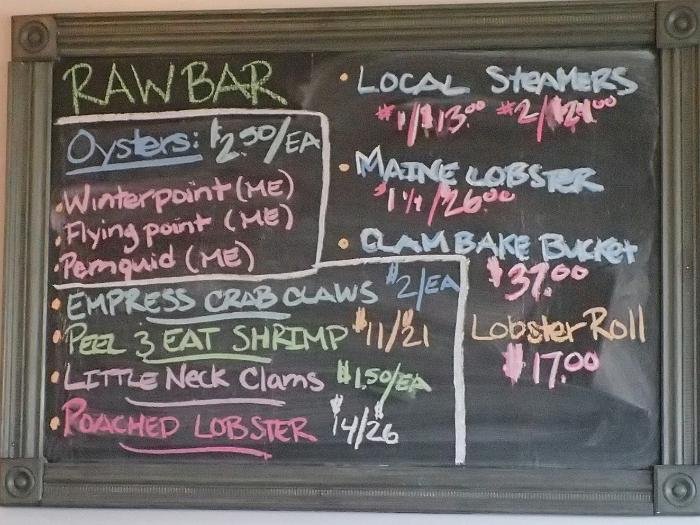 RAW BAR
Oysters: $2.50/EA
Winterpoint (ME)
Flying point (ME)
Pemquid (ME)
EMPRESS CRAB CLAWS $2/EA
PEEL & EAT SHRIMP $11/21
LITTLE Neck Clams $1.50/EA
POACHED LOBSTER $14/26
LOCAL STEAMERS
#1/$13.00 #2/$24.00
MAINE LOBSTER
1 1/4 /26.00
CLAM BAKE BUCKET
$37.00
Lobster Roll
$17.00